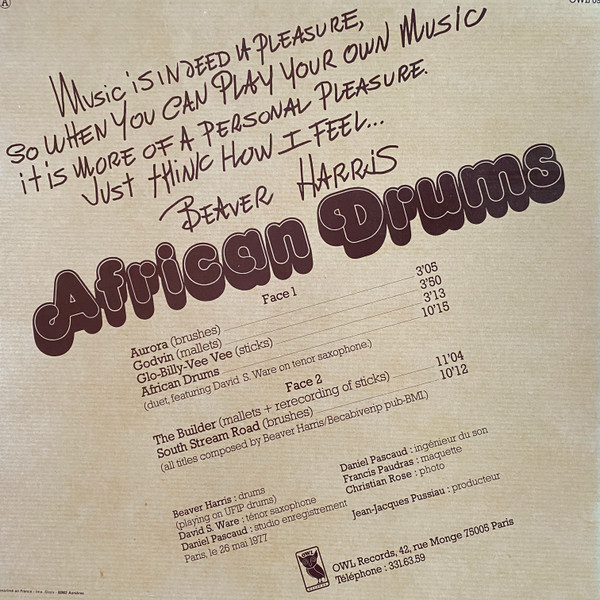 A
MUSIC iS INDEED A PLEASURE,
SO WHEN YOU CAN PLAY YOUR OWN MUSIC
it iS MORE OF A PERSONAL PLEASURE.
JUST THINK HOW I FEEL...
BEAVER HARRiS
African Drums
Face 1
Aurora (brushes) 3'05
Godvin (mallets) 3'50
Glo-Billy-Vee Vee (sticks) 3'13
African Drums 10'15
(duet, featuring David S. Ware on tenor saxophone.)
Face 2
The Builder (mallets + rerecording of sticks) 11'04
South Stream Road (brushes) 10'12
(all titles composed by Beaver Harris/Becabiverip pub-BMI.)
Beaver Harris : drums
(playing on UFIP drums)
David S. Ware : ténor saxophone
Daniel Pascaud : studio enregistrement
Paris, le 26 mai 1977
Daniel Pascaud : ingénieur du son
Francis Paudras : maquette
Christian Rose : photo
Jean-Jacques Pussiau : producteur
OWL
OWL Records, 42, rue Monge 75005 Paris
Téléphone : 331.63.59